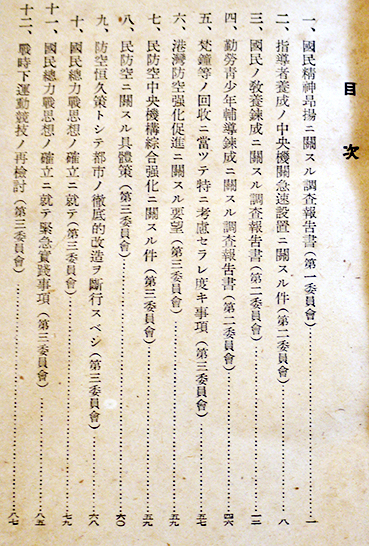 目次
一、國民精神昂揚ニ關スル調査報告書(第一委員會)…………一
二、指導者養成ノ中央機關急速設置ニ關スル件(第二委員會)…………八
三、國民ノ敎養錬成ニ關スル調査報告書(第二委員會)…………一三
四、勤勞靑少年輔導錬成ニ關スル調査報告書(第二委員會)…………四六
五、梵鐘等ノ回收ニ當ツテ特ニ考慮セラレ度キ事項(第三委員會)…………五七
六、港灣防空强化促進ニ關スル要望(第三委員會)…………五九
七、民防空中央機構綜合强化ニ關スル件(第三委員會)…………五九
八、民防空ニ關スル具體策(第三委員會)…………六〇
九、防空恒久策トシテ都市ノ徹底的改造ヲ斷行スベシ(第三委員會)…………六八
十、國民總力戰思想ノ確立ニ就テ(第三委員會)…………七九
十一、國民總力戰思想ノ確立ニ就テ緊急實踐事項(第三委員會)…………八五
十二、戰時下運動競技ノ再檢討(第三委員會)…………八七